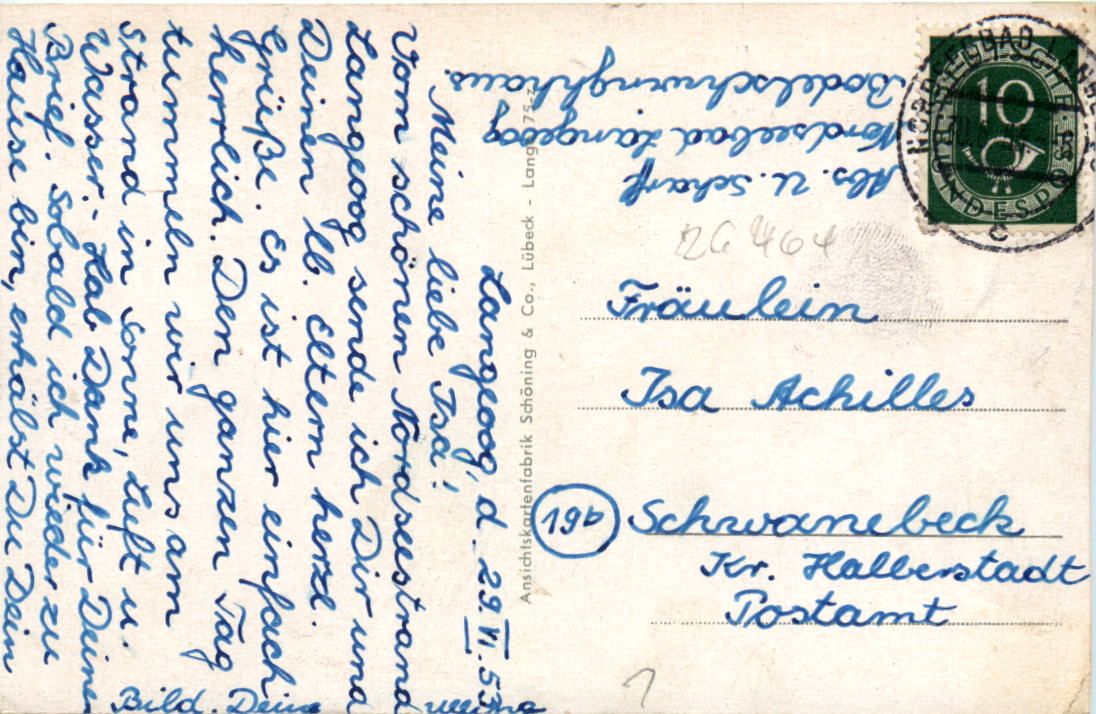 Langeoog, d. 29. VI. 53
Meine liebe Isa!
Vom schönen Nordseestrand
Langeoog sende ich Dir und
Deinen lb. Eltern herzl.
Grüße. Es ist hier einfach
herrlich. Den ganzen Tag
tummeln wir uns am
Strand in Sonne, Luft u.
Wasser. - Hab Dank für Deinen
Brief. Sobald ich wieder zu
Hause bin, erhälst Du Dein
Bild. Deine
Abs. U. Scharf
Nordseebad Langeoog
Bodelschwinghhaus.
Ansichtskartenfabrik Schöning & Co., Lübeck - Lang
NORDSEEBAD LANGEOOG
c
10
DEUTSCHE BUNDESPOST
Fräulein
Isa Achilles
19b Schwanebeck
Kr. Halberstadt
Postamt
1